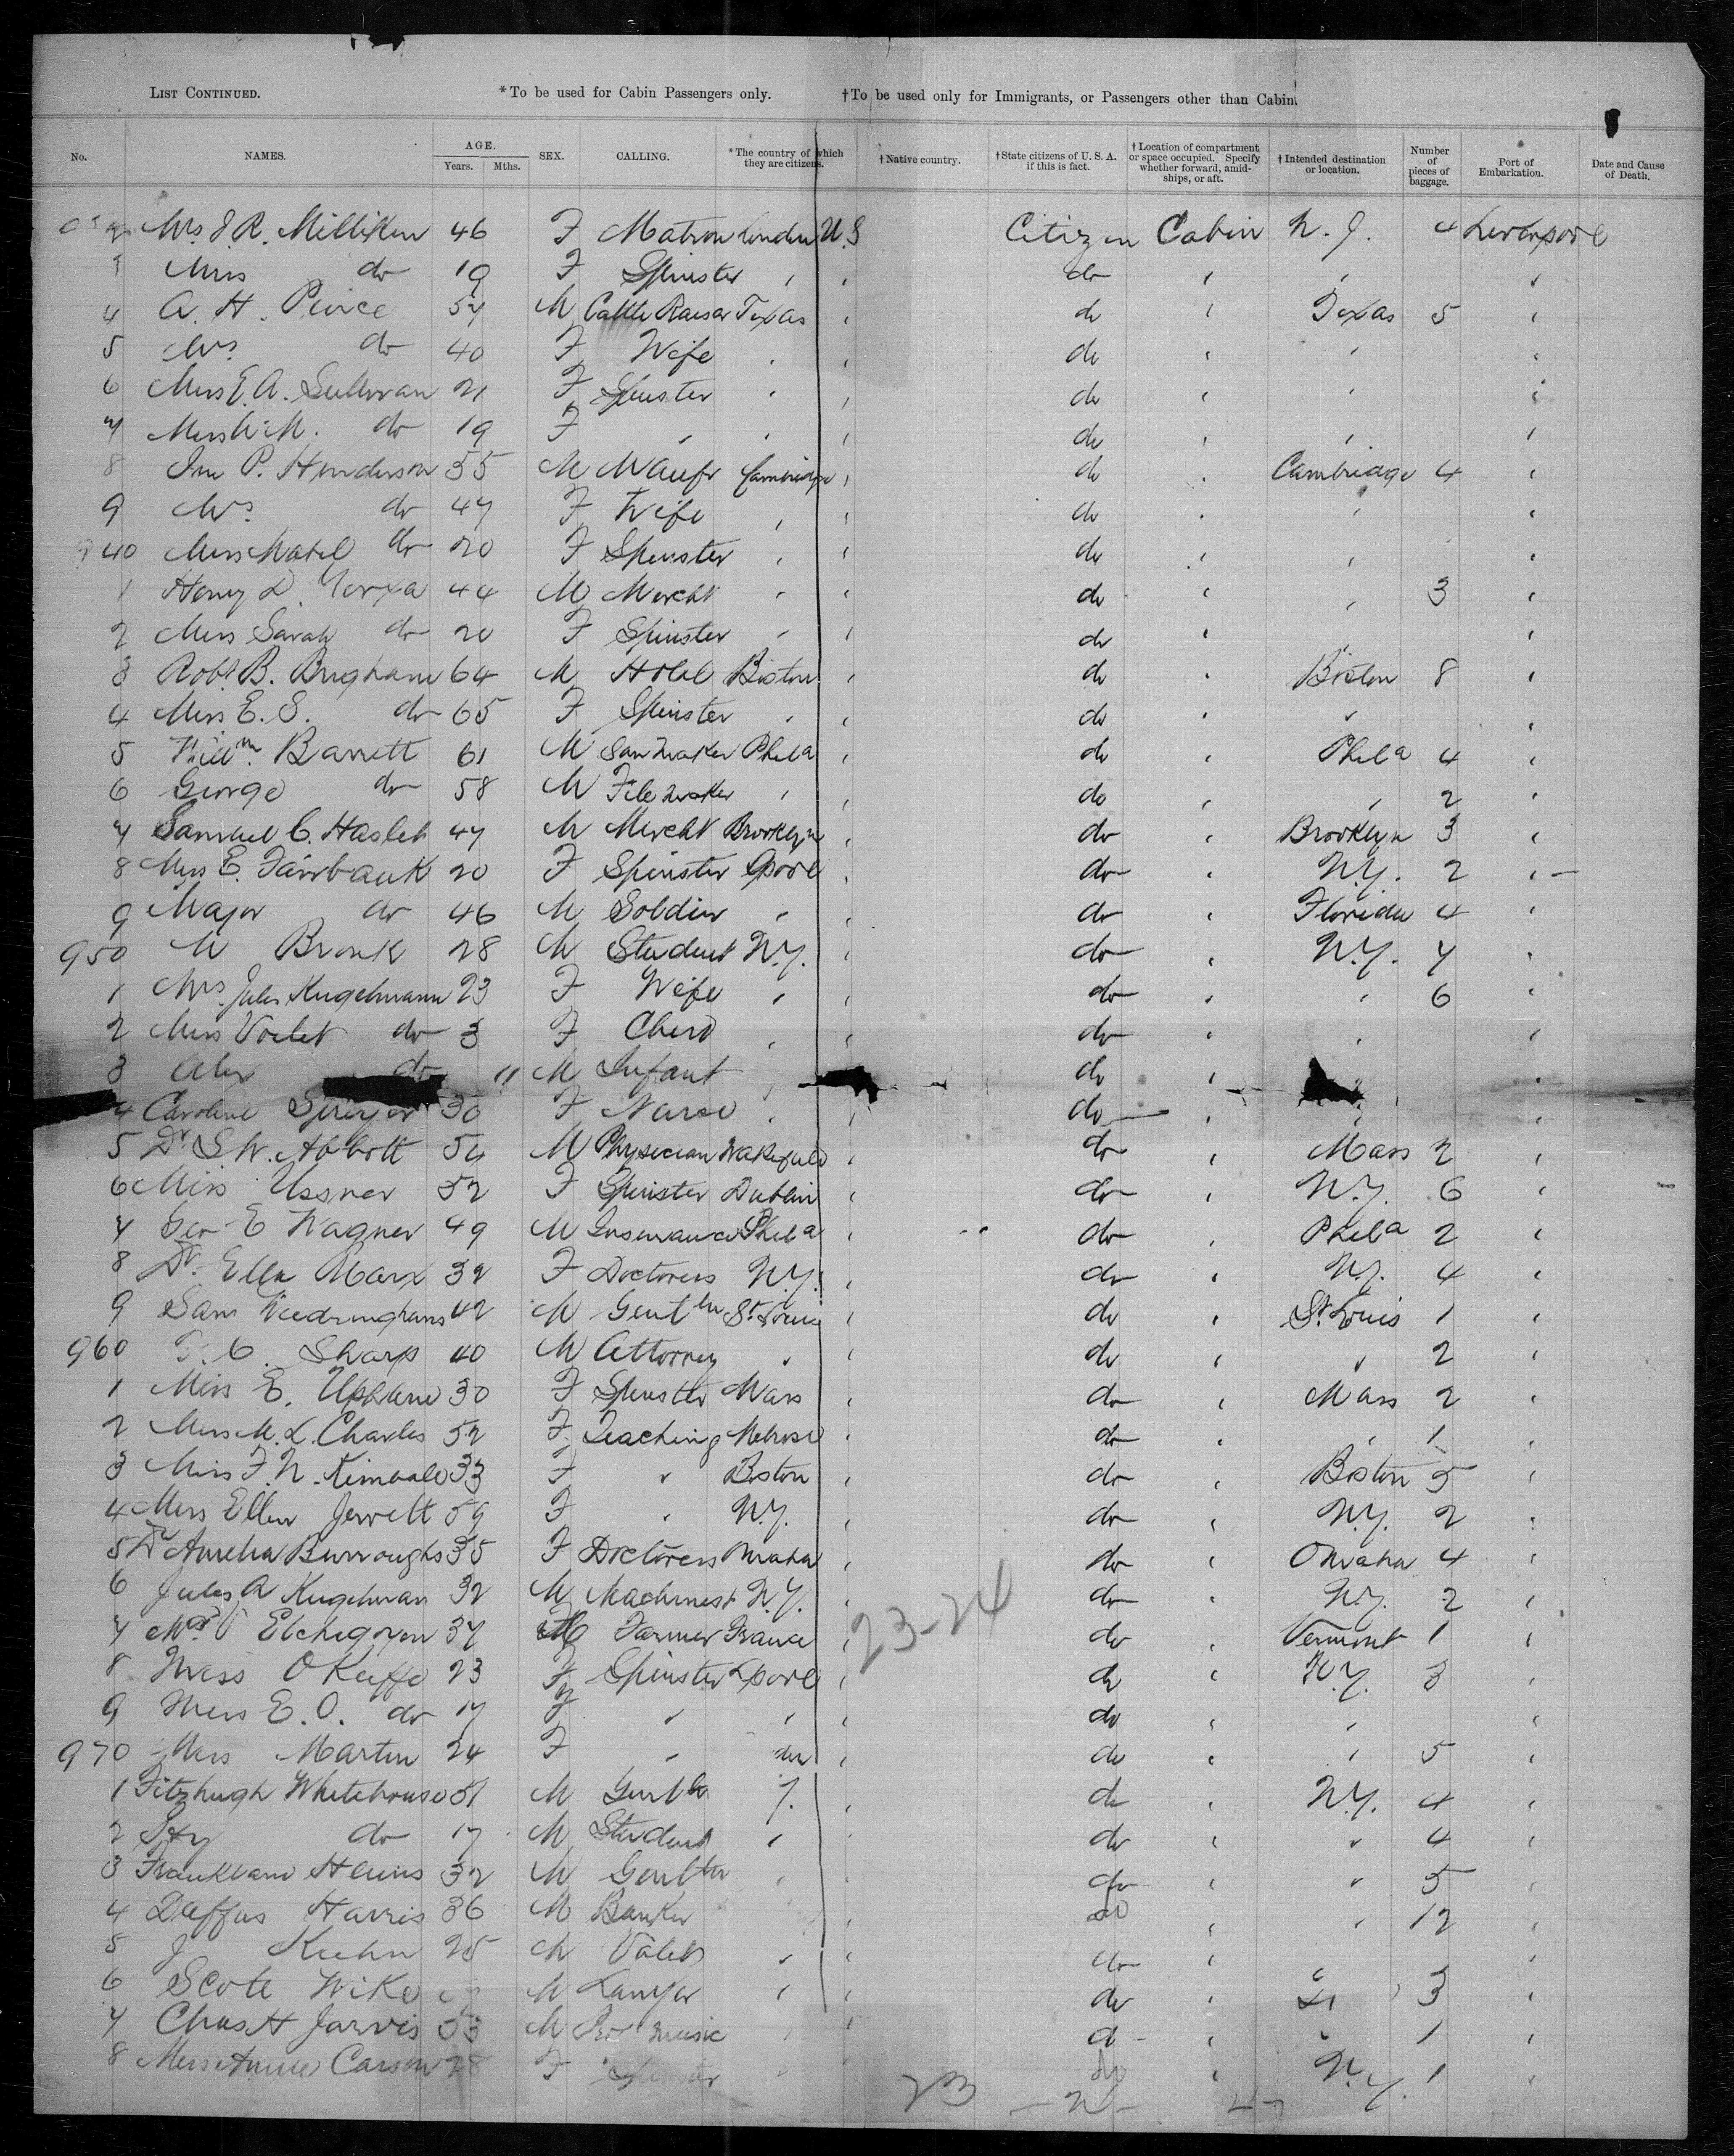 LIST CONTINUED. *To be used for Cabin Passengers only. †To be used only for Immigrants, or Passengers other than Cabin.
No. NAMES. AGE. Years. Mths. SEX. CALLING. *The country of which they are citizens. †Native country. †State citizens of U. S. A. if this is fact. †Location of compartment or space occupied. Specify whether forward, amidships, or aft. †Intended destination or location. Number of pieces of baggage. Port of Embarkation. Date and Cause of Death.
2 Mrs J. R. Milliken 46 F Matron London U.S Citizen Cabin N. J. 4 Liverpool
Miss do 19 F Spinster " " do " " "
4 A. H. Peirce 57 M Cattle Raeser Texas " do " Texas 5 "
5 Mrs do 40 F Wife " " do " " "
6 Miss E. A. Sullivan 21 F Spinster " " do " "
7 Miss M. do 19 F " " " do " " "
8 P. Henderson 55 M Manfr Cambridge " do " Cambridge 4 "
9 Mrs do 47 F Wife " " do " " "
940 Miss Mabel do 20 F Spinster " " do " " "
1 Henry D. Yerxa 44 M Mercht " " do " " 3 "
2 Miss Sarah do 20 F Spinster " " do " "
3 Robt B. Brigham 64 M Hotel Boston " do " Boston 8 "
4 Miss E. S. do 65 F Spinster " " do " " "
5 Willm Barrett 61 M Saw Maker Phila " do " Phila 4 "
6 George do 58 M File Maker " " do " " 2 "
7 Samuel C. Haslet 47 M Mercht Brooklyn " do " Brooklyn 3 "
8 Miss E. Fairbank 20 F Spinster Lpool " do " N.Y. 2 "
9 Major do 46 M Soldier " " do " Florida 4 "
950 M Bronk 28 M Student N.Y. " do " N.Y. 7 "
1 Mrs Jules Kugelmann 23 F Wife " " do " " 6 "
2 Miss Voilet do 3 F Child " " do " " "
3 Alex do 11 M Infant " do " "
4 Caroline 30 F Nurse " " do " " "
5 Dr S. W. Abbott 54 M Physician Wakefield " do " Mass 2 "
6 Miss Ussner 52 F Spinster Dublin " do " N.Y. 6 "
7 Geo E Wagner 49 M Insurance Phila " do " Phila 2 "
8 Dr. Ella Marx 32 F Doctoress N.Y. " do " N.Y. 4 "
9 Sam 42 M Gentln St. Louis " do " St. Louis 1 "
960 T. C. Sharp 40 M Attorney " " do " " 2 "
1 Miss E. Upham 30 F Spinster Mass " do " Mass 2 "
2 Miss M. L. Charles 52 F Teaching Melrose " do " " 1 "
3 Miss F. N. Kimball 33 F " Boston " do " Boston 5 "
4 Miss Ellen Jewett 59 F " N.Y. " do " N.Y. 2 "
5 Dr Amelia Burroughs 35 F Doctoress Omaha " do " Omaha 4 "
6 Jules A Kugelman 32 M Machinest N.Y. " do " N.Y. 2 "
7 Etchegoyen 37 M Farmer France " 23-24 do " Vermont 1 "
8 Miss O'Keeffe 23 F Spinster Lpool " do " N.Y. 3 "
9 Miss E. O. do 17 F " " " do " " "
970 Miss Martin 24 F " " do " " 5 "
1 Fitzhugh Whitehouse 51 M Gentln Y. " do " N.Y. 4 "
2 do 17 M Student " do " " 4 "
3 32 M Gentln " do " " 5 "
4 Duffus Harris 36 M Banker " do " " 12 "
5 J Kuehn 25 M Valet " " do " "
6 Scott Wike M Lawyer " " do " 3 "
7 Chas H Jarvis 53 M Music " " 1 "
8 Miss Annie Carson 28 F Spinster do " N.Y. 1 "
23